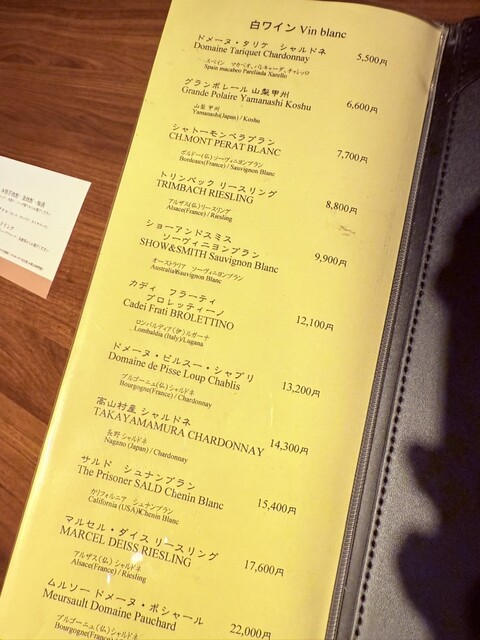 白ワイン Vin blanc
ドメーヌ・タリケ シャルドネ
Domaine Tariquet Chardonnay 5,500円
スペイン マカベオ、パレリャーダ、チャレッロ
Spain macabeo Parellada Xarello
グランポレール 山梨甲州
Grande Polaire Yamanashi Koshu 6,600円
山梨 甲州
Yamanashi(Japan) / Koshu
シャトーモンペラブラン
CH.MONT PERAT BLANC 7,700円
ボルドー(仏) ソーヴィニヨンブラン
Bordeaux(France) / Sauvignon Blanc
トリンバック リースリング
TRIMBACH RIESLING 8,800円
アルザス(仏) リースリング
Alsace(France) / Riesling
ショーアンドスミス
ソーヴィニヨンブラン
SHOW&SMITH Sauvignon Blanc 9,900円
オーストラリア ソーヴィニヨンブラン
Australia/Sauvignon Blanc
カディ フラーティ
ブロレッティーノ
Cadei Frati BROLETTINO 12,100円
ロンバルディア(伊)/ルガーナ
Lombaldia (Italy)/Lugana
ドメーヌ・ピルスー・シャブリ
Domaine de Pisse Loup Chablis 13,200円
ブルゴーニュ(仏) シャルドネ
Bourgogne(France) / Chardonnay
高山村産 シャルドネ
TAKAYAMAMURA CHARDONNAY 14,300円
長野 シャルドネ
Nagano (Japan) / Chardonnay
サルド シュナンブラン
The Prisoner SALD Chenin Blanc 15,400円
カリフォルニア シュナンブラン
California (USA)/Chenin Blanc
マルセル・ダイス リースリング
MARCEL DEISS RIESLING 17,600円
アルザス(仏) / シャルドネ
Alsace(France) / Riesling
ムルソー ドメーヌ・ポシャール
Meursault Domaine Pauchard 22,000円
ブルゴーニュ(仏) シャルドネ
Bourgogne(France)